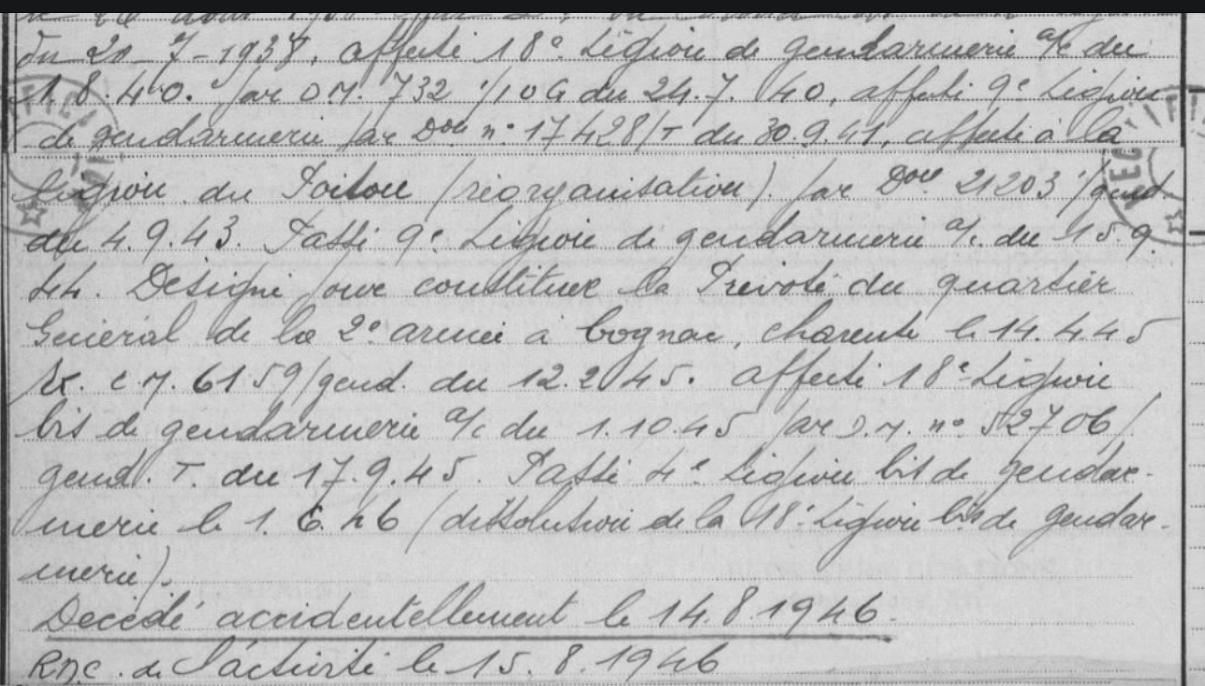 du 20-7-1938, affecté 18e Légion de gendarmerie a/c du
1.8.40. par D.M. 732 1/10G du 24.7.40, affecté 9e Légion
de gendarmerie par Don n° 17428/T du 30.9.41, affecté à la
Légion du Poitou (réorganisation) par Don 21203 /gend.
du 4.9.43. Passé 9e Légion de gendarmerie a/c. du 15.9.
44. Désigné pour constituer la Prévoté du quartier
Général de la 2e armée à Cognac, charente le 14.4.45
C.M. 6159/gend. du 12.2.45. affecté 18e Légion
bis de gendarmerie a/c du 1.10.45 par D.M. n° 52706/
gend. T. du 17.9.45. Passé 4e Légion bis de gendar-
merie le 1.6.46 (dissolution de la 18e Légion bis de gendar-
merie).
Décédé accidentellement le 14.8.1946.
R.D.C. de l'activité le 15.8.1946